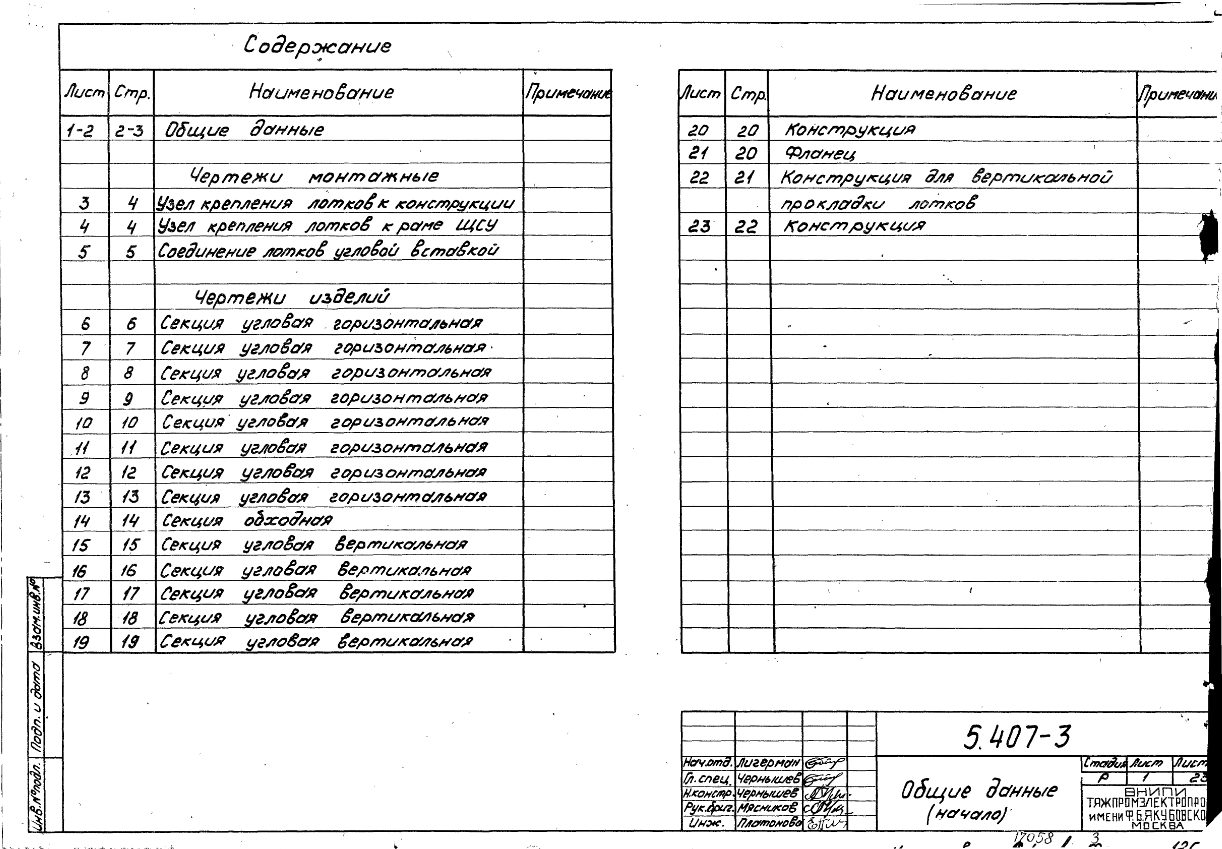 Содержание
Лист Стр. Наименование Примечание
1-2 2-3 Общие данные
Чертежи монтажные
3 4 Узел крепления лотков к конструкции
4 4 Узел крепления лотков к раме ЩСУ
5 5 Соединение лотков угловой вставкой
Чертежи изделий
6 6 Секция угловая горизонтальная
7 7 Секция угловая горизонтальная
8 8 Секция угловая горизонтальная
9 9 Секция угловая горизонтальная
10 10 Секция угловая горизонтальная
11 11 Секция угловая горизонтальная
12 12 Секция угловая горизонтальная
13 13 Секция угловая горизонтальная
14 14 Секция обходная
15 15 Секция угловая вертикальная
16 16 Секция угловая вертикальная
17 17 Секция угловая вертикальная
18 18 Секция угловая вертикальная
19 19 Секция угловая вертикальная
Лист Стр. Наименование Примечани
20 20 Конструкция
21 20 Фланец
22 21 Конструкция для вертикальной
прокладки лотков
23 22 Конструкция
Взам.инв.№
Подп. и дата
Инв.№подл.
5.407-3
Нач.отд. Лигерман
Гл.спец. Чернышев
Н.контр. Чернышев
Рук.бриг. Мясников
Инж. Платонова
Общие данные
(начало)
Стадия Лист Лист
Р 1 23
ВНИПИ
ТЯЖПРОМЭЛЕКТРОПРО
ИМЕНИ Ф.Б.ЯКУБОВСКО
МОСКВА
17058 3